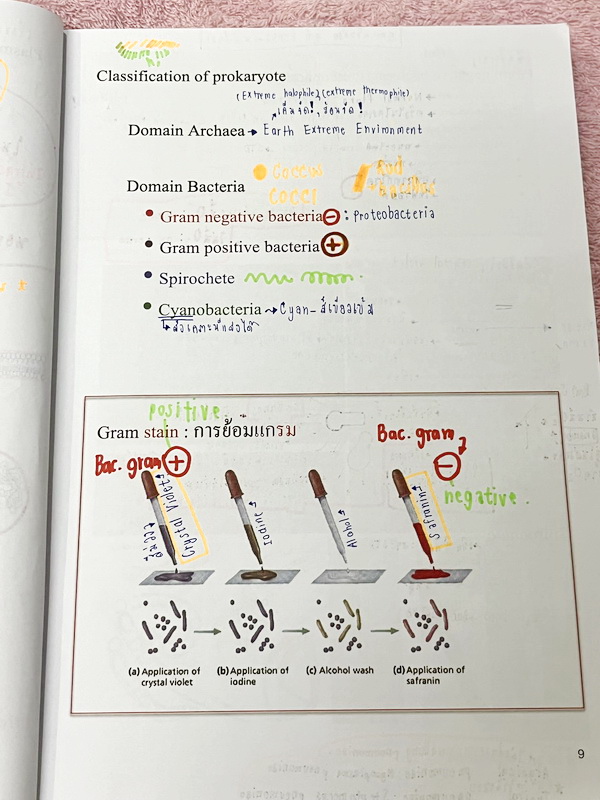 Classification of prokaryote
(Extreme halophile), (extreme thermophile)
เค็มจัด!, ร้อนจัด!
Domain Archaea → Earth Extreme Environment
Domain Bacteria
Coccus
cocci
Rod
Bacillus
Gram negative bacteria ⊖ : Proteobacteria
Gram positive bacteria ⊕
Spirochete
Cyanobacteria → Cyan - สีเขียวเข้ม
↳ สังเคราะห์แสงได้
positive
Gram stain : การย้อมแกรม
Bac. gram ⊕
Bac. gram ⊖
negative.
Crystal Violet
Iodine
Alohol
Safranin
(a) Application of crystal violet
(b) Application of iodine
(c) Alcohol wash
(d) Application of safranin
9